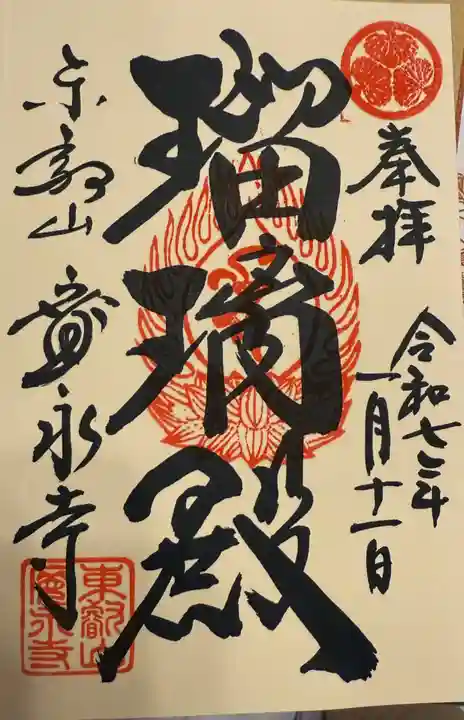 奉拝
令和七年
一月十一日
瑠璃殿
東叡山 寛永寺
東叡山
寛永寺